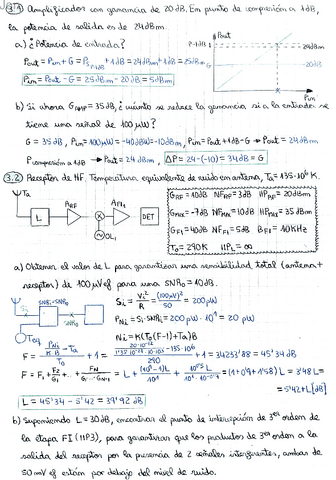 3.1 Amplificador con ganancia de 20dB. En punto de compresión a 1dB,
la potencia de salida es de 24dBm.
a) ¿Potencia de entrada?
Pout = Pin + G = P-1dB + 1dB = 24dBm + 1dB = 25dBm
Pin = Pout - G = 25dBm - 20dB = 5dBm
Pout
P-1dB
24dBm
20dB
Pin
b) Si ahora GAMP = 35dB, ¿cuánto se reduce la ganancia si a la entrada se
tiene una señal de 100μW?
G = 35dB, Pin = 100μW = -40dBW = -10dBm, Pin = Pout + 1dB - G → Pout = 24dBm
Pcompresión a 1dB → Pout = 24dBm, ΔP = 24 - (-10) = 34dB = G
3.2 Receptor de HF. Temperatura equivalente de ruido en antena, Ta = 135·10⁶K.
Ta
L
ARF
AFI1
DET
OL1
GRF = 10dB NFRF = 3dB IIPRF = 20dBm
GMX = -7dB NFMX = 10dB IIPMX = 35dBm
GFI = 40dB NFFI = 5dB BFI = 10KHz
T0 = 290K IIPL = ∞
a) Obtener el valor de L para garantizar una sensibilidad total (antena +
receptor) de 100μVef para una SNR0 = 10dB.
Si = Vi²/R = (100μV)²/50 = 200pW
PNi = Si·SNR0 = 200pW·10⁻¹ = 20pW
PNi = K(T0(F-1)+Ta)B
= 34233'88 = 45'34dB
= 5'42+L [dB]
L = 45'34 - 5'42 = 39'92 dB
b) Suponiendo L = 30dB, encontrar el punto de intercepción de 3er orden de
la etapa FI (IIP3), para garantizar que los productos de 3er orden a la
salida del receptor por la presencia de 2 señales interferentes, ambas de
50mVef estén por debajo del nivel de ruido.